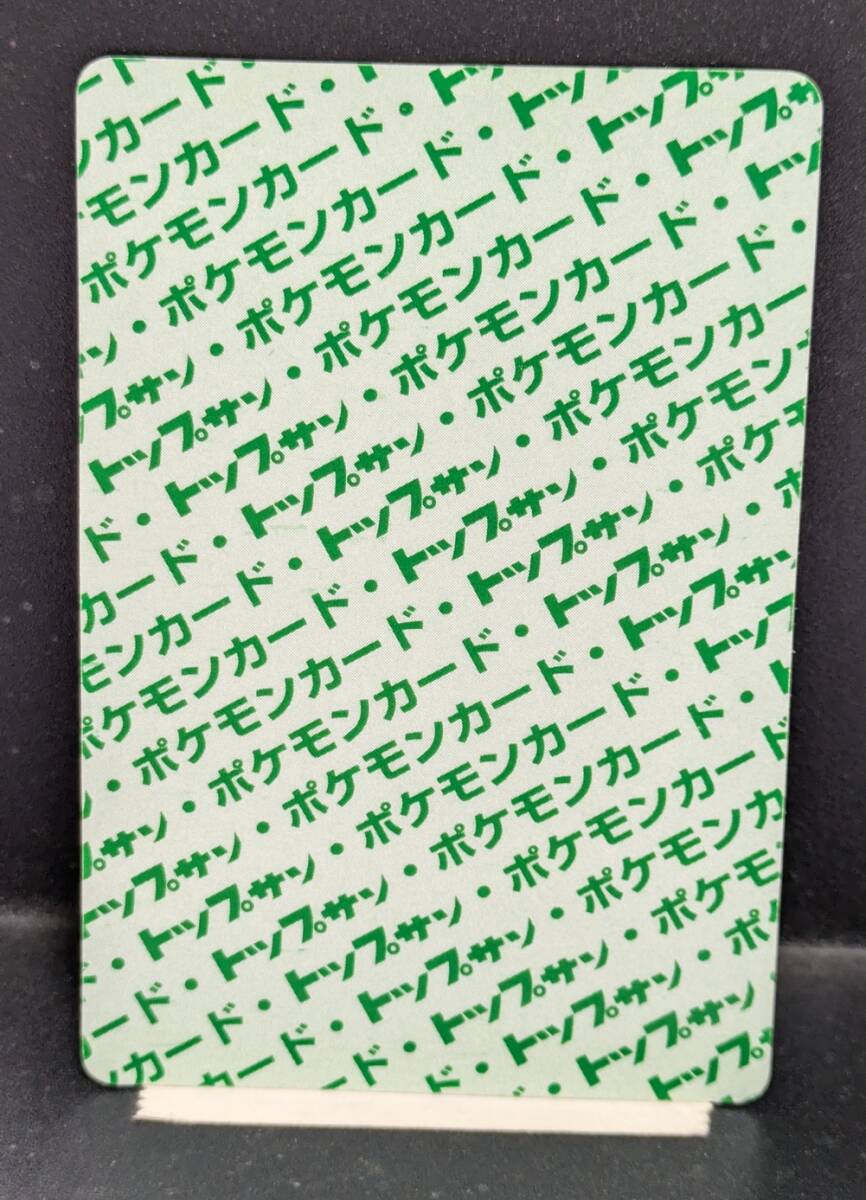 ンカード・
モンカード・
ポケモンカード・ト
ン・ポケモンカード・トッ
プサン・ポケモンカード・トップ
トップサン・ポケモンカード・トップサ
ド・トップサン・ポケモンカード・トッ
カード・トップサン・ポケモンカード・
モンカード・トップサン・ポケモンカー
ポケモンカード・トップサン・ポケモン
・ポケモンカード・トップサン・ポケ
プサン・ポケモンカード・トップサン・
トップサン・ポケモンカード・トップサン
・トップサン・ポケモンカード・トップ
ード・トップサン・ポケモンカード・
ンカード・トップサン・ポケモンカード
ード・トップサン・ポケモンカ
ド・トップサン・ポケモ
・トップサン・ポ
・トップサン
トップ